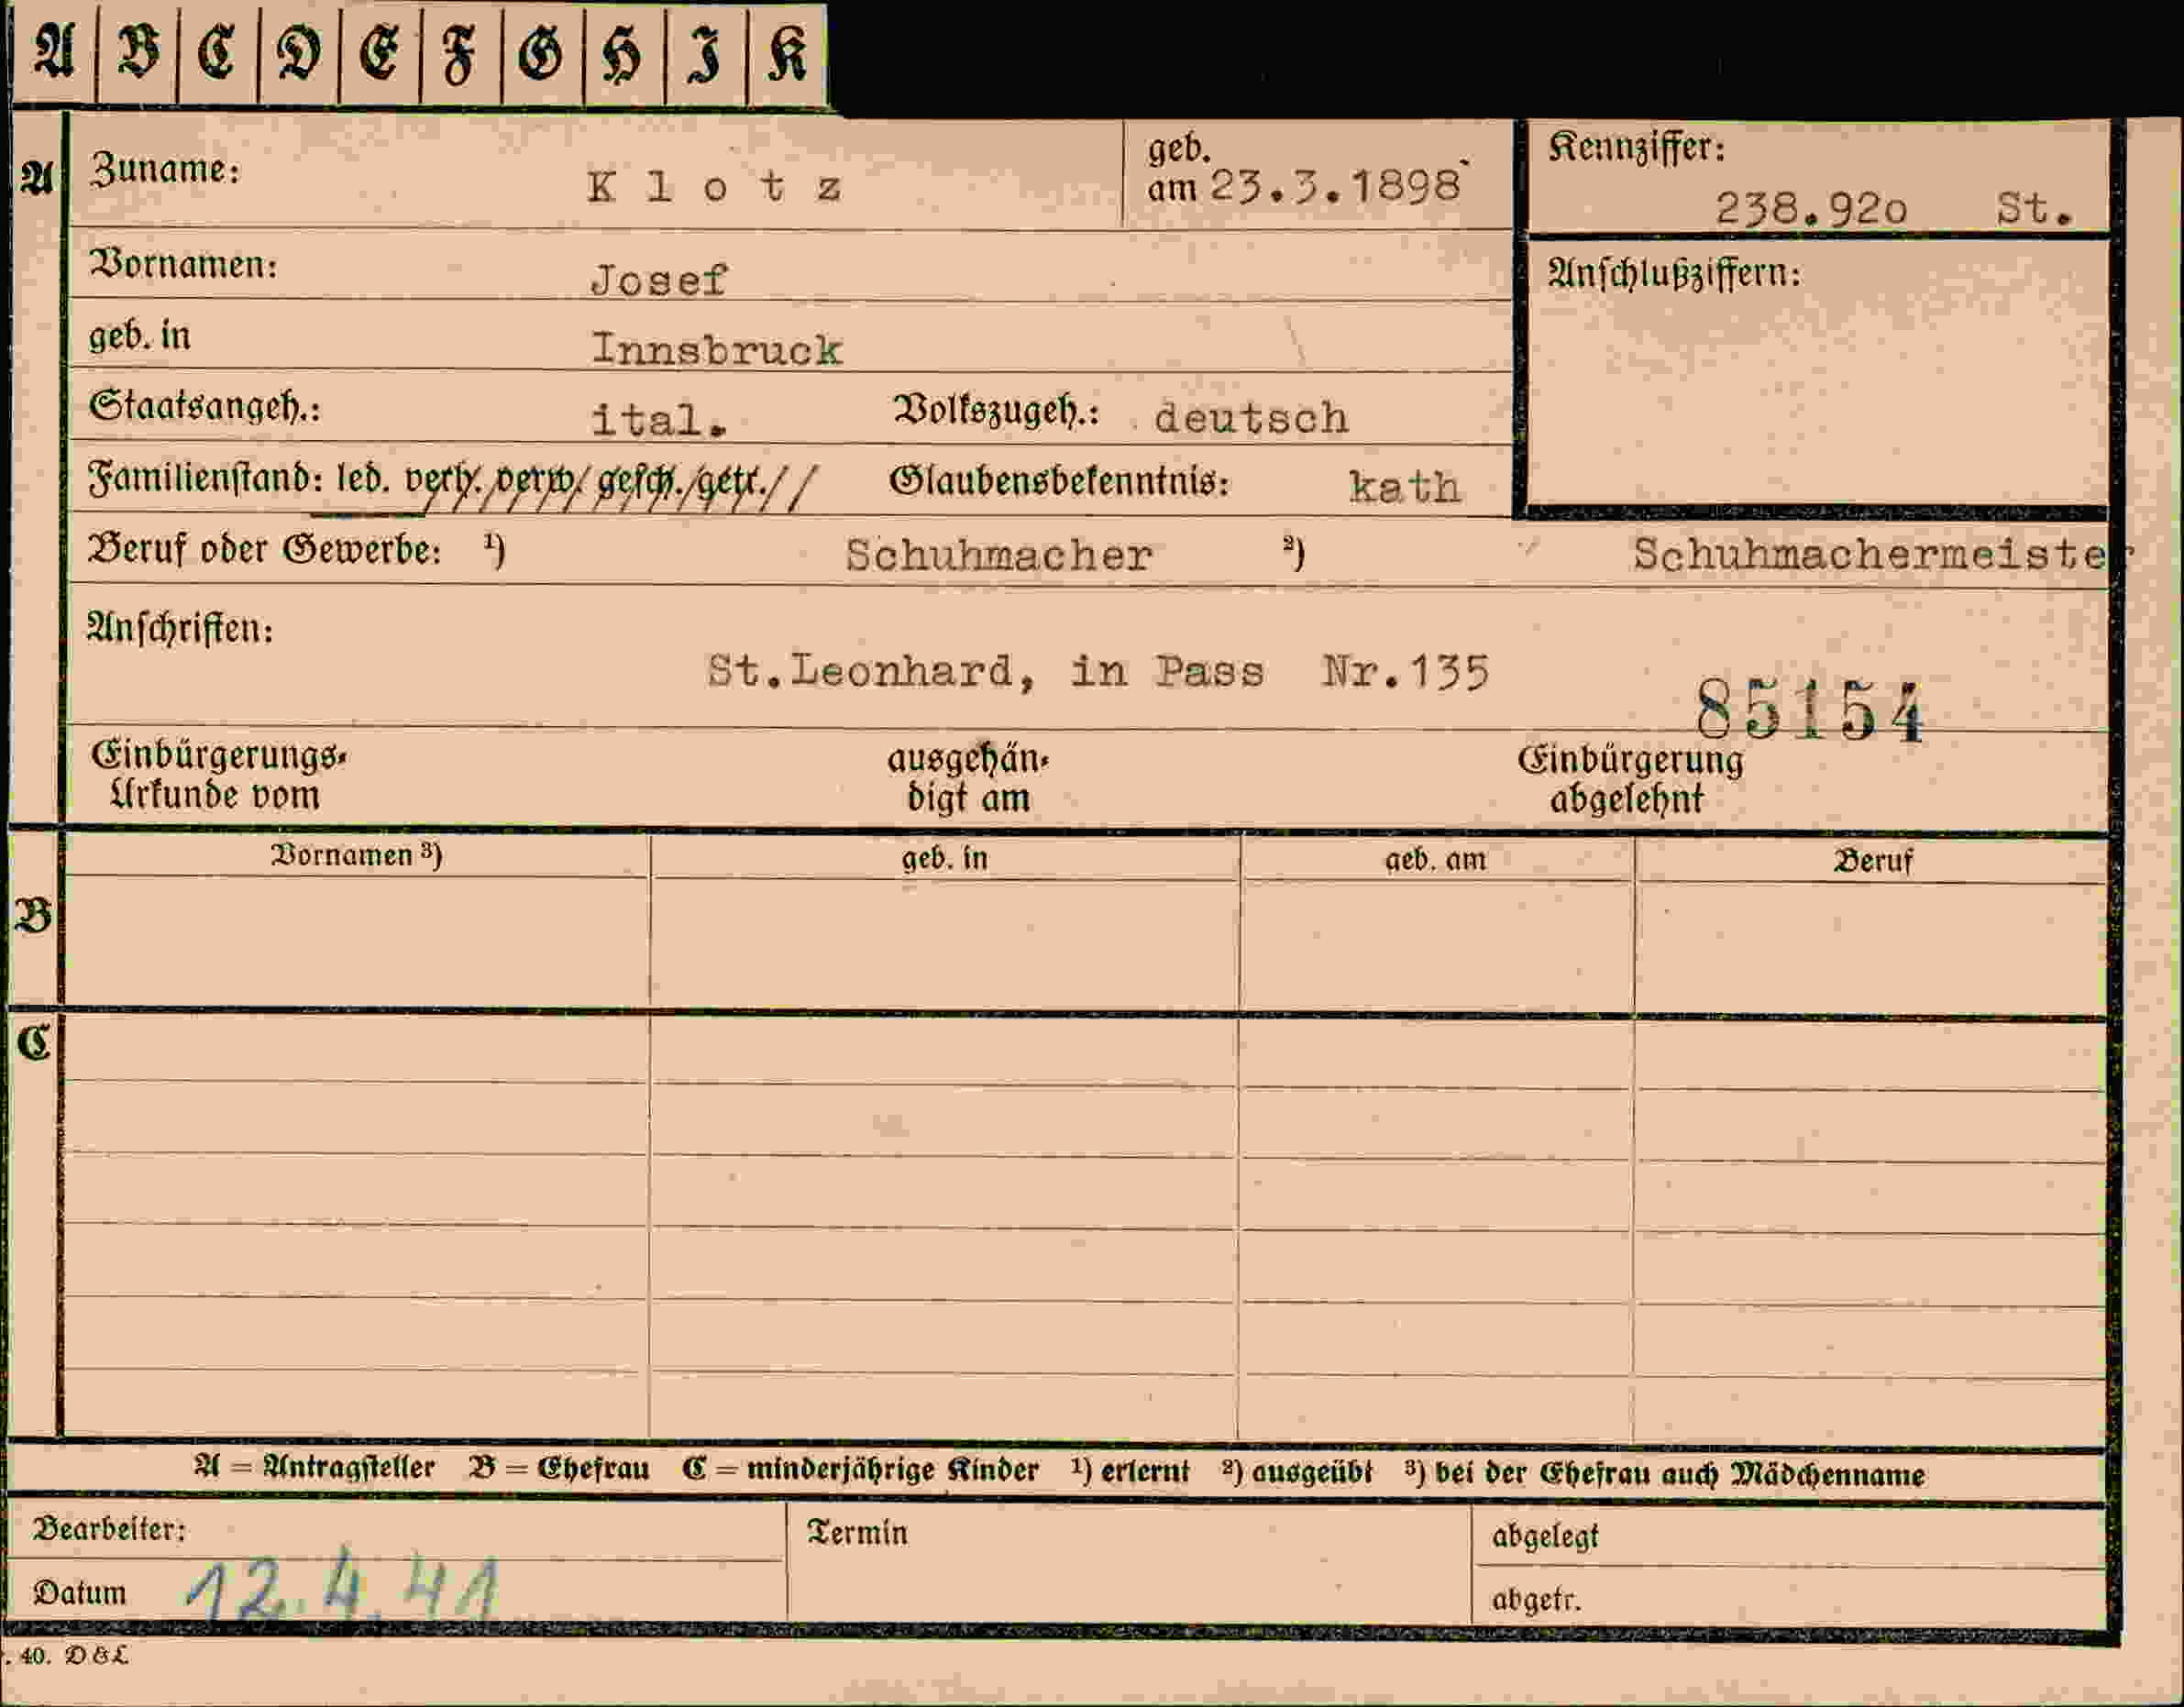 A B C D E F G H I K
A Zuname: Klotz geb. am 23.3.1898 Kennziffer: 238.920 St.
Vornamen: Josef Anschlußziffern:
geb. in Innsbruck
Staatsangeh.: ital. Volkszugeh.: deutsch
Familienstand: led. verh. verw. gesch. getr. Glaubensbekenntnis: kath
Beruf oder Gewerbe: ¹) Schuhmacher ²) Schuhmachermeister
Anschriften:
St.Leonhard, in Pass Nr.135
85154
Einbürgerungs-Urkunde vom ausgehändigt am Einbürgerung abgelehnt
Vornamen ³) geb. in geb. am Beruf
B
C
A = Antragsteller B = Ehefrau C = minderjährige Kinder ¹) erlernt ²) ausgeübt ³) bei der Ehefrau auch Mädchenname
Bearbeiter: Termin abgelegt
Datum 12.4.41 abgetr.
. 40. D&L